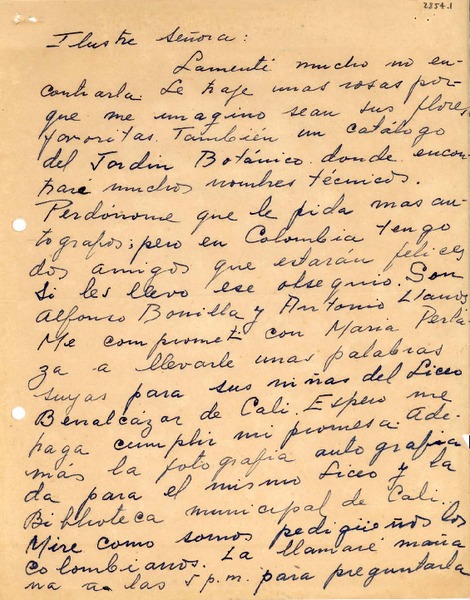 2854.1
Ilustre Señora:
Lamenté mucho no en-
contrarla. Le traje unas rosas por-
que me imagino sean sus flores
favoritas. También un catálogo
del Jardín Botánico donde encon-
trará muchos nombres técnicos.
Perdóneme que le pida mas au-
tógrafos; pero en Colombia tengo
dos amigos que estarán felices
si les llevo ese obsequio. Son
Alfonso Bonilla y Antonio Llanos
Me comprometí con Maria Perla-
za a llevarle unas palabras
suyas para sus niñas del Liceo
Benalcázar de Cali. Espero me
haga cumplir mi promesa. Ade-
más la fotografia autografia
da para el mismo Liceo y la
Biblioteca municipal de Cali.
Mire como somos pedigüeños los
colombianos. La llamaré maña
na a las 5 p.m. para preguntarla